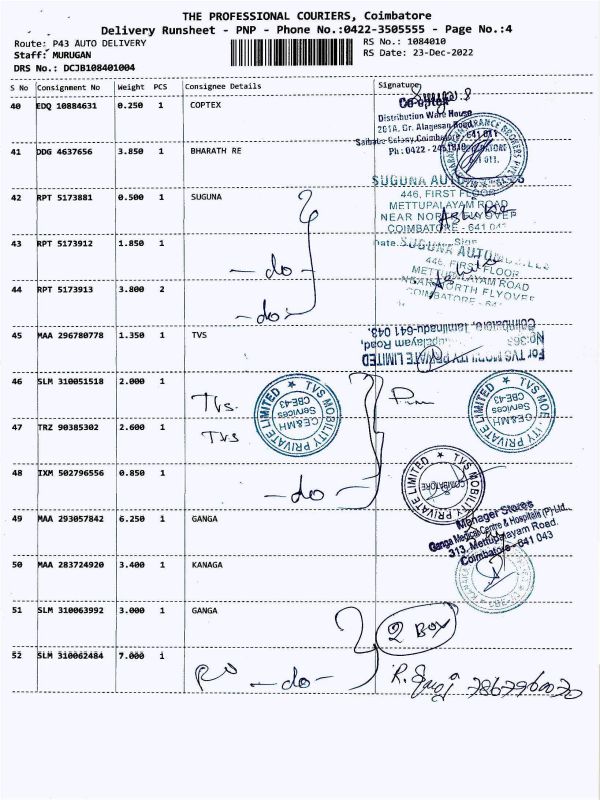 THE PROFESSIONAL COURIERS, Coimbatore
Delivery Runsheet - PNP - Phone No.:0422-3505555 - Page No.:4
Route: P43 AUTO DELIVERY
RS No.: 1084010
Staff: MURUGAN
RS Date: 23-Dec-2022
DRS No.: DCJB108401004
S No Consignment No Weight PCS Consignee Details Signature
40 EDQ 10884631 0.250 1 COPTEX
Co-optex
Distribution Ware House
201A, Dr. Alagesan Road,
Saibaba Colony, Coimbatore, 641 011
41 DDG 4637656 3.850 1 BHARATH RE
SUGUNA
446, FIRST FLOOR
42 RPT 5173881 0.500 1 SUGUNA
METTUPALAYAM ROAD
NEAR NORTH FLYOVER
COIMBATORE - 641
43 RPT 5173912 1.850 1
SUGUNA AUTOMOBILES
446, FIRST FLOOR
- do -
METTUPALAYAM ROAD
NEAR NORTH FLYOVER
44 RPT 5173913 3.800 2
COIMBATORE - 641
- do -
45 MAA 296780778 1.350 1 TVS
Coimbatore, Tamilnadu-641 043.
For TVS MOBILITY PRIVATE LIMITED
46 SLM 310051518 2.000 1
TVS
TVS MOBILITY PRIVATE LIMITED
CE&MH
Services
CBE-43
CE&MH
Services
CBE-43
47 TRZ 90385302 2.600 1
TVS
48 IXM 502796556 0.850 1
- do -
TVS MOBILITY PRIVATE LIMITED
COIMBATORE
49 MAA 293057842 6.250 1 GANGA
Manager Stores
Ganga Medical Centre & Hospitals (P) Ltd.,
313, Mettupalayam Road,
Coimbatore - 641 043
50 MAA 283724920 3.400 1 KANAGA
51 SLM 310063992 3.000 1 GANGA
2 BOX
52 SLM 310062484 7.000 1
- do -